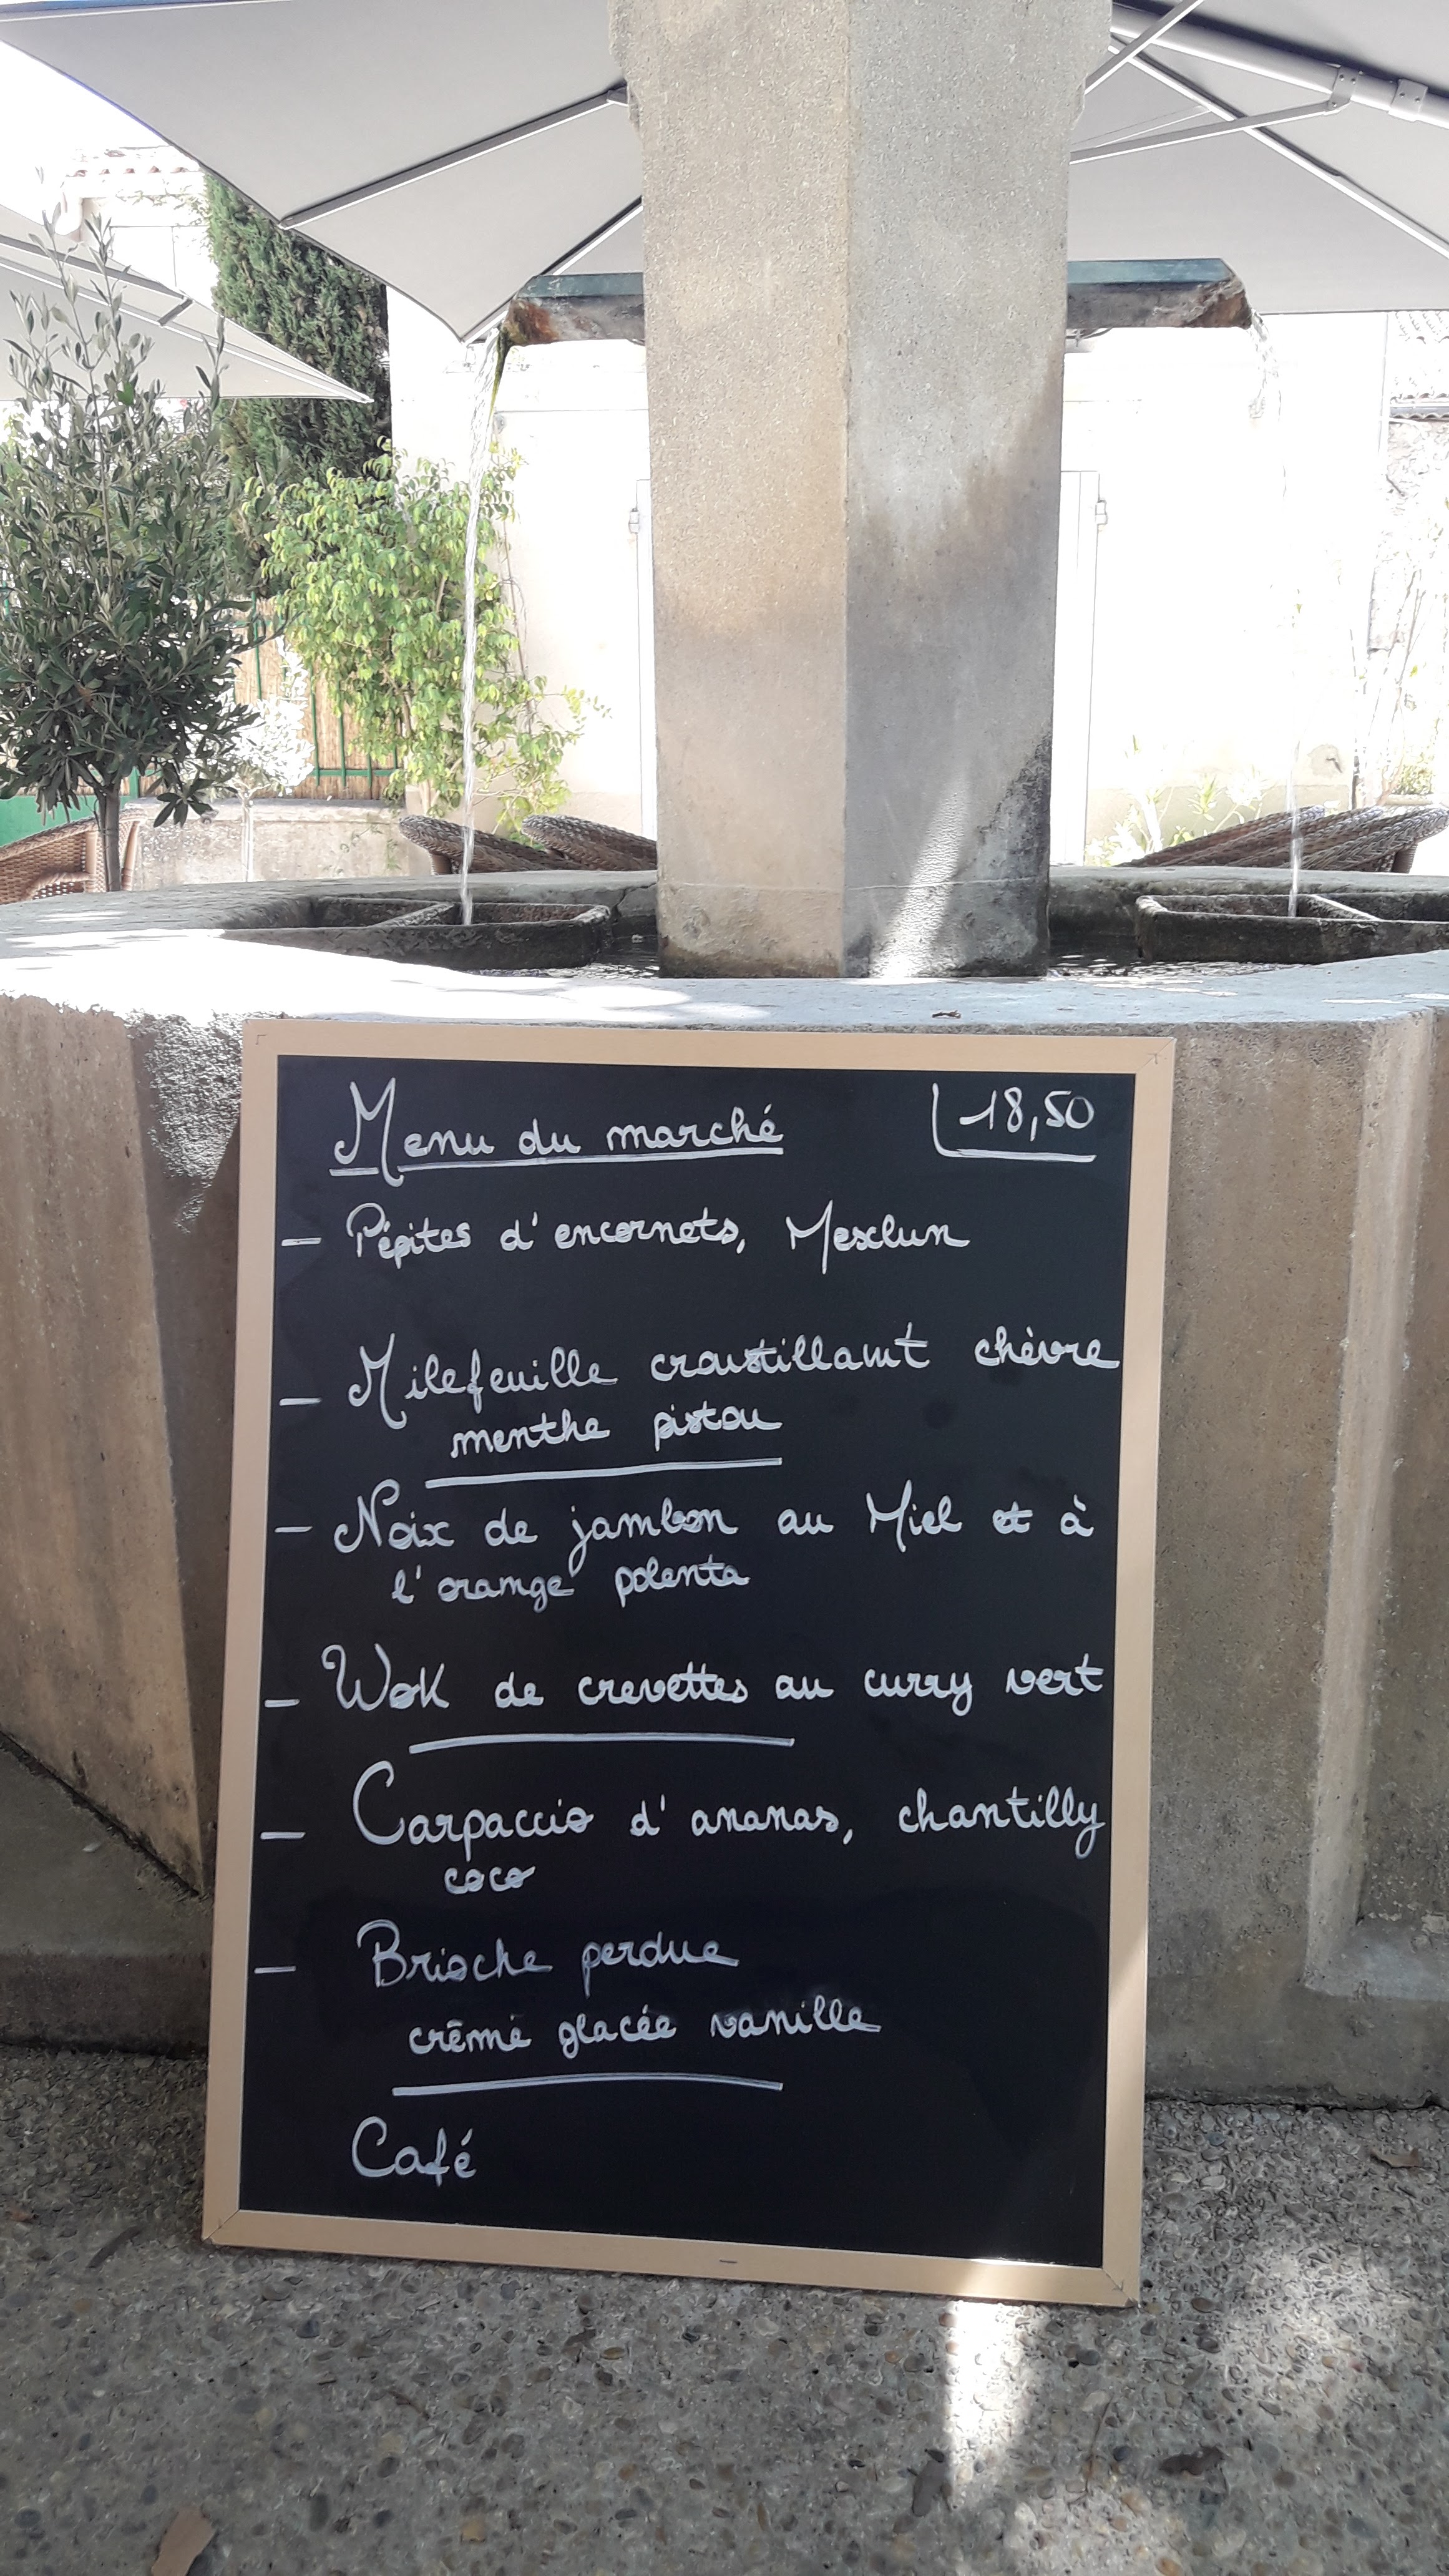 Menu du marché 18,50
- Pépites d'encornets, Mesclun
- Milefeuille croustillant chèvre
menthe pistou
- Noix de jambon au Miel et à
l'orange polenta
- Wok de crevettes au curry vert
- Carpaccio d'ananas, chantilly
coco
- Brioche perdue
crème glacée vanille
Café